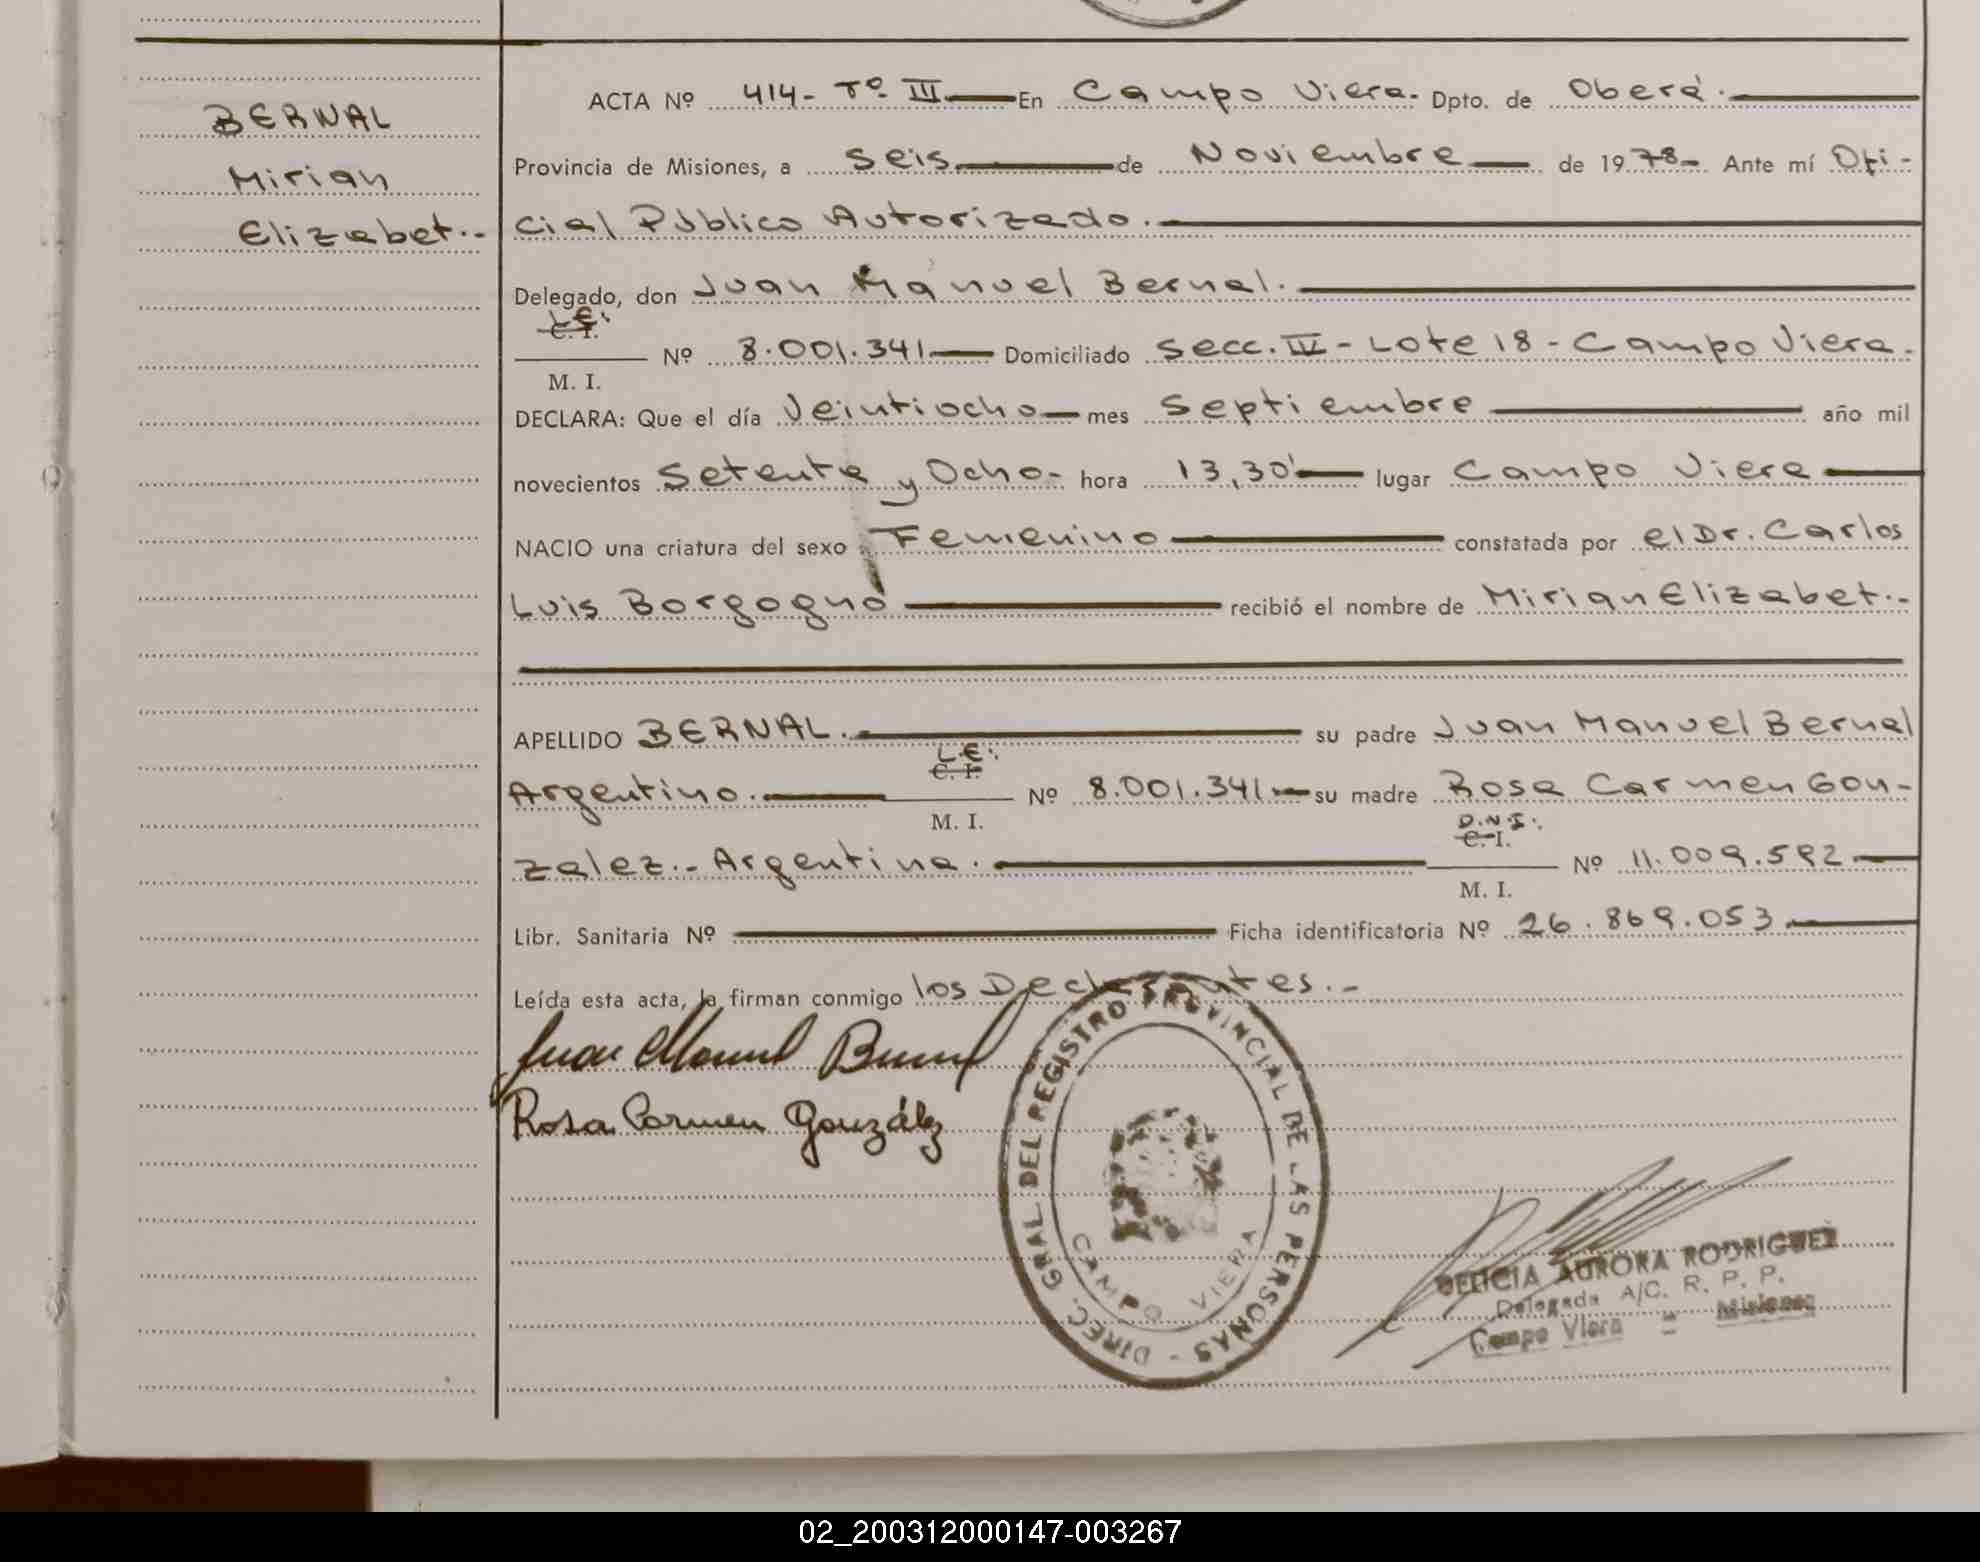 BERNAL
Mirian
Elizabet.-
ACTA Nº 414- Tº III En Campo Viera. Dpto. de Oberá.
Provincia de Misiones, a Seis de Noviembre de 1978- Ante mí Ofi-
cial Público Autorizado.
Delegado, don Juan Manuel Bernal.
L.E:
C. I.
Nº 8.001.341 Domiciliado Secc. IV - Lote 18 - Campo Viera.
M. I.
DECLARA: Que el día Veintiocho mes Septiembre año mil
novecientos Setenta y Ocho- hora 13,30' lugar Campo Viera
NACIO una criatura del sexo Femenino constatada por el Dr. Carlos
Luis Borgogno recibió el nombre de Mirian Elizabet.-
APELLIDO BERNAL. su padre Juan Manuel Bernal
L.E:
C. I.
Argentino. Nº 8.001.341.- su madre Rosa Carmen Gon-
M. I.
D.N.I:
C. I.
zalez.- Argentina. Nº 11.009.592
M. I.
Libr. Sanitaria Nº Ficha identificatoria Nº 26.869.053
Leída esta acta, la firman conmigo los Declarantes.-
Juan Manuel Bernal
Rosa Carmen González
DIREC. GRAL DEL REGISTRO PROVINCIAL DE LAS PERSONAS -
CAMPO VIERA
DELICIA AURORA RODRIGUEZ
Delegada A/C. R. P. P.
Campo Viera = Misiones
02_200312000147-003267